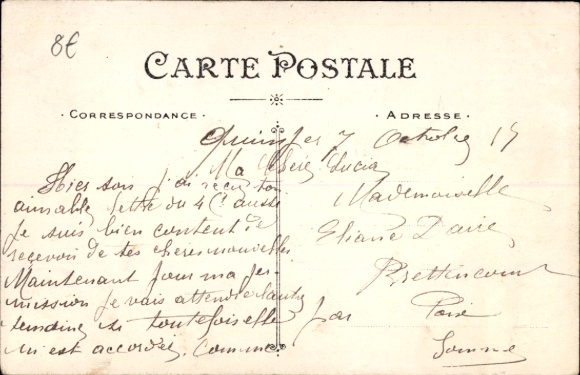 8€
CARTE POSTALE
CORRESPONDANCE
ADRESSE
7 Octobre 15
Ma Chère Lucia
Hier soir j'ai reçu ton
aimable lettre du 4 Ct aussi
je suis bien content de
recevoir de tes chères nouvelles
Maintenant pour ma per
mission je vais attendre l'autre
semaine si toutefois elle
m'est accordée. Comme
Mademoiselle
Eliane Daire
Bettencourt
par Poix
Somme